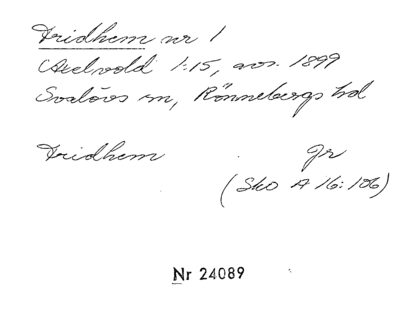 Fridhem nr 1
Axelvold 1:15, avs. 1899
Svalövs sn, Rönnebergs hd
Fridhem gr
(Sko A 16:106)
Nr 24089